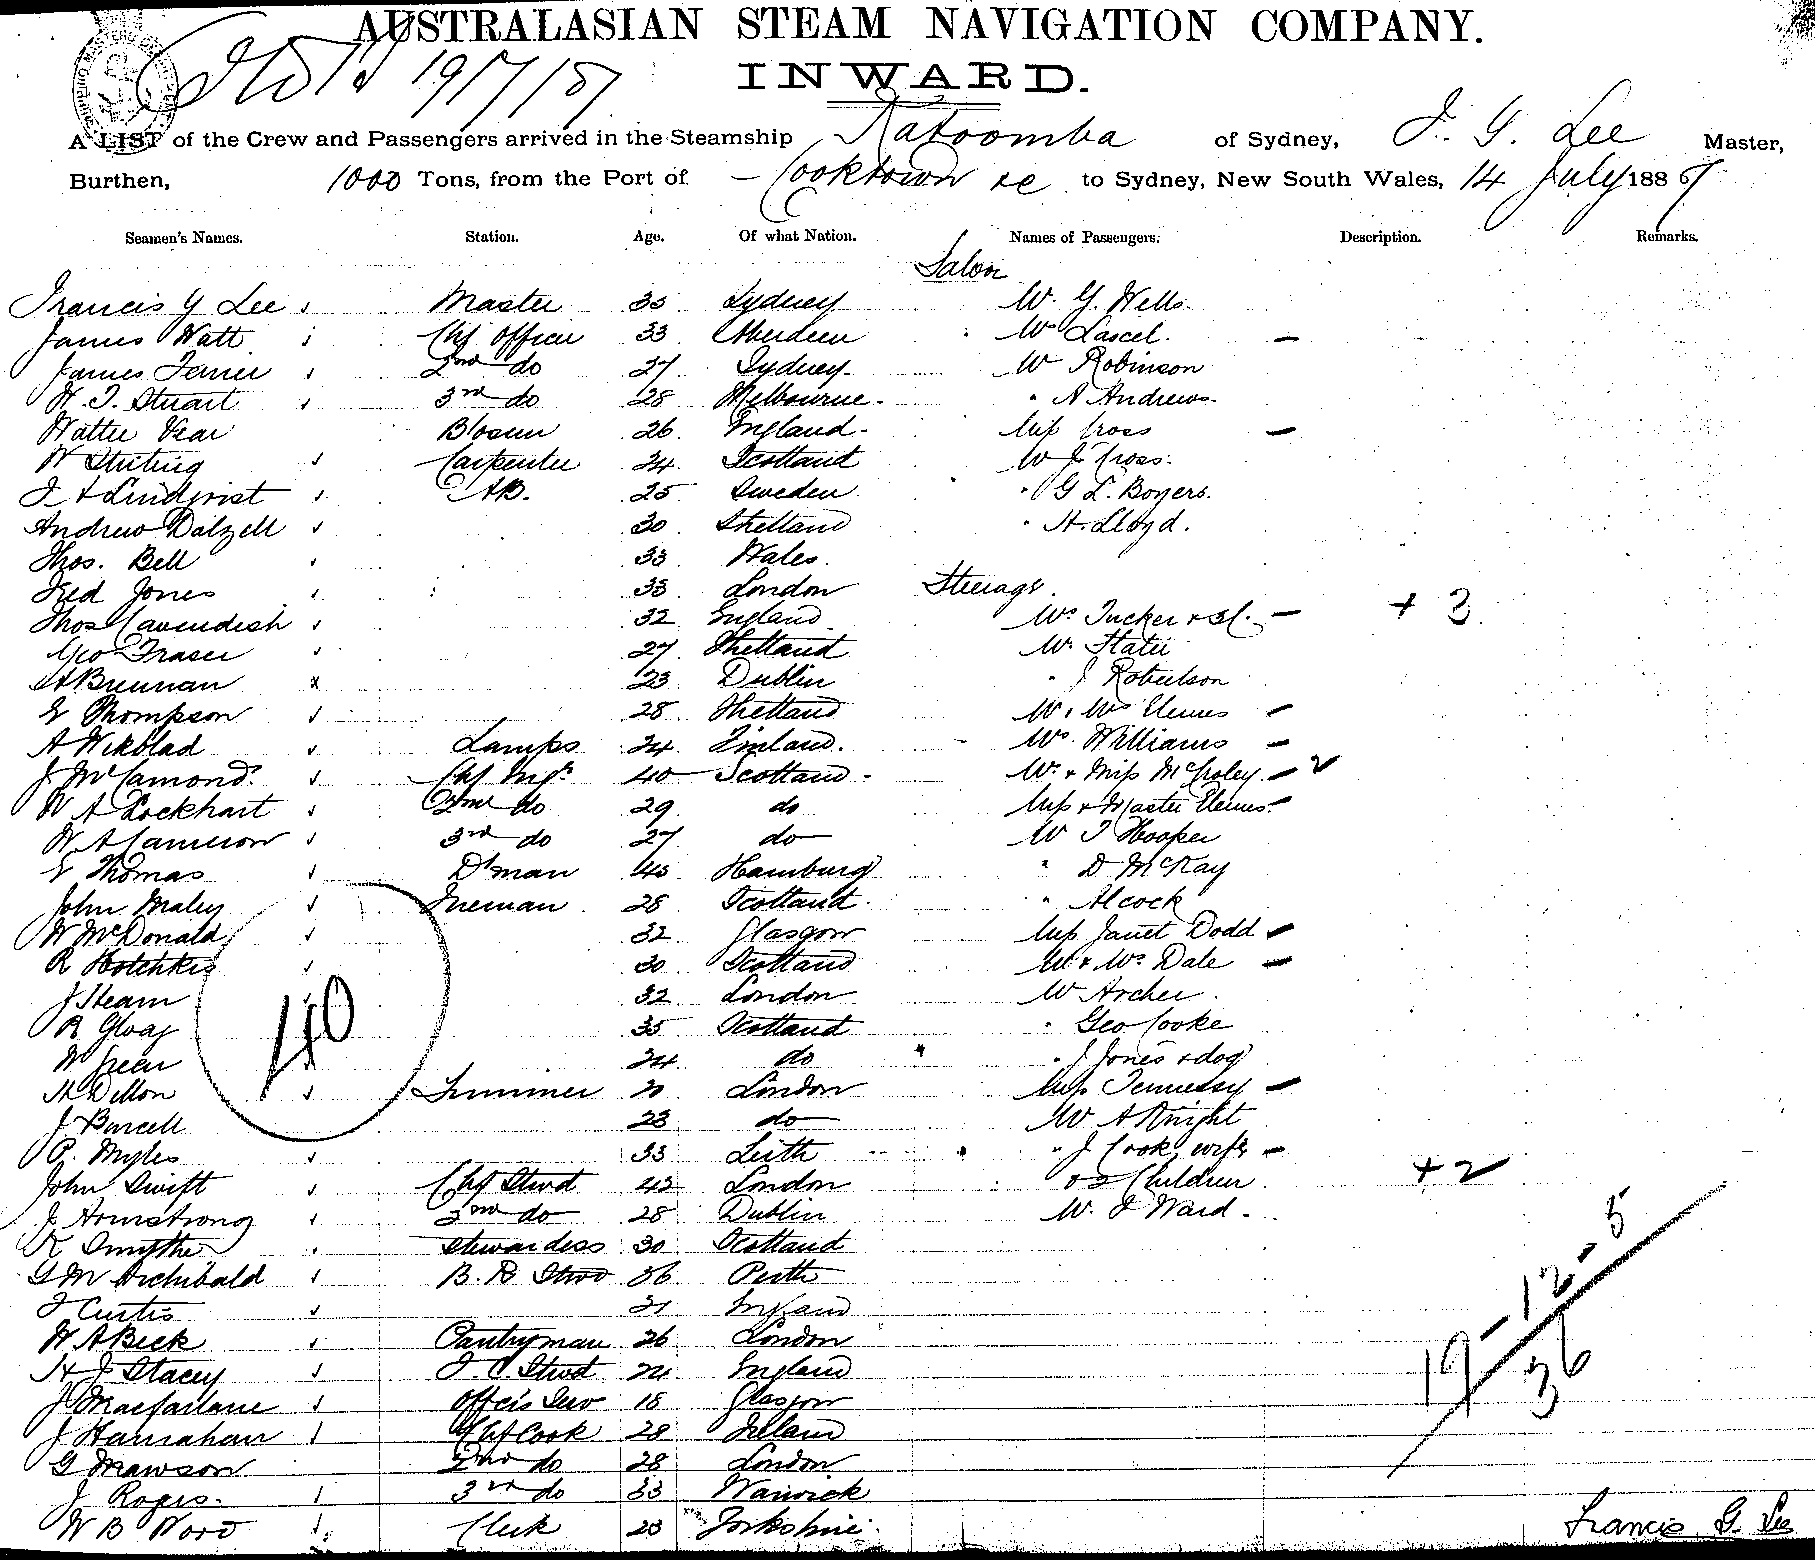 AUSTRALASIAN STEAM NAVIGATION COMPANY.
INWARD.
A LIST of the Crew and Passengers arrived in the Steamship Katoomba of Sydney, F. G. Lee Master,
Burthen, 1000 Tons, from the Port of Cooktown &c to Sydney, New South Wales, 14 July 1887
Seamen's Names. Station. Age. Of what Nation. Names of Passengers. Description. Remarks.
Saloon
Francis G Lee Master 35 Sydney Mr. G. Wells
James Watt Chf Officer 33 Aberdeen Mrs Lascel. -
James Ferrier 2nd do 27 Sydney Mr Robinson
W. T. Stuart 3rd do 28 Melbourne " A Andrews
Walter Vear Bosun 26 England Miss Cross -
W Stirling Carpenter 34 Scotland Mr J Cross
J A Lindqvist AB. 25 Sweden " G L. Boyers.
Andrew Dalzell 30 Shetland " H. Lloyd.
Thos. Bell 33 Wales
Fred Jones 33 London Steerage
Thos Cavendish 32 England Mrs Tucker + 3 C. - + 3
Geo Fraser 27 Shetland Mr.
Brennan 23 Dublin " J Robertson
Thompson 28 Shetland Mr & Mrs -
A Wikblad Lamps 24 Finland. Mrs. Williams -
J. McCamond Chf Engr 40 Scotland Mr. & Miss -
W A Lockhart 2nd do 29 do Miss & Master -
W A Cameron 3rd do 27 do Mr T Hooper
Thomas Dkman 45 Hamburg " D McKay
John Maley Fireman 28 Scotland " Alcock
W McDonald 32 Glasgow Miss Janet Dodd -
R Hotchkis 30 Scotland Mr & Mrs Dale -
J Hearn 32 London Mr Archer
R Gloag 35 Scotland " Geo Cooke
W Green 24 do " J Jones & dog
H Dillon Trimmer 20 London Miss Tennessy -
J Purcell 23 do Mr A Knight
P. Myles 33 Leith " J Cook, wife -
John Swift Chf Stwd 43 London & 2 Children + 2
J Armstrong 2nd do 28 Dublin Mr. J Ward
K Smythe Stewardess 30 Scotland
G M Archibald B. R Stwd 36 Perth
J Curtis 21 England
W A Beck Pantryman 26 London
H J Stacey F. C. Stwd 24 England
J Macfarlane Offcrs Serv 18 Glasgow
J Hanrahan Chf Cook 28 Ireland
G Mawson 2nd do 28 London
J Rogers 3rd do 33 Warwick
W B Word Clerk 23 Yorkshire
40
19 - 12 - 5
36
Francis G. Lee